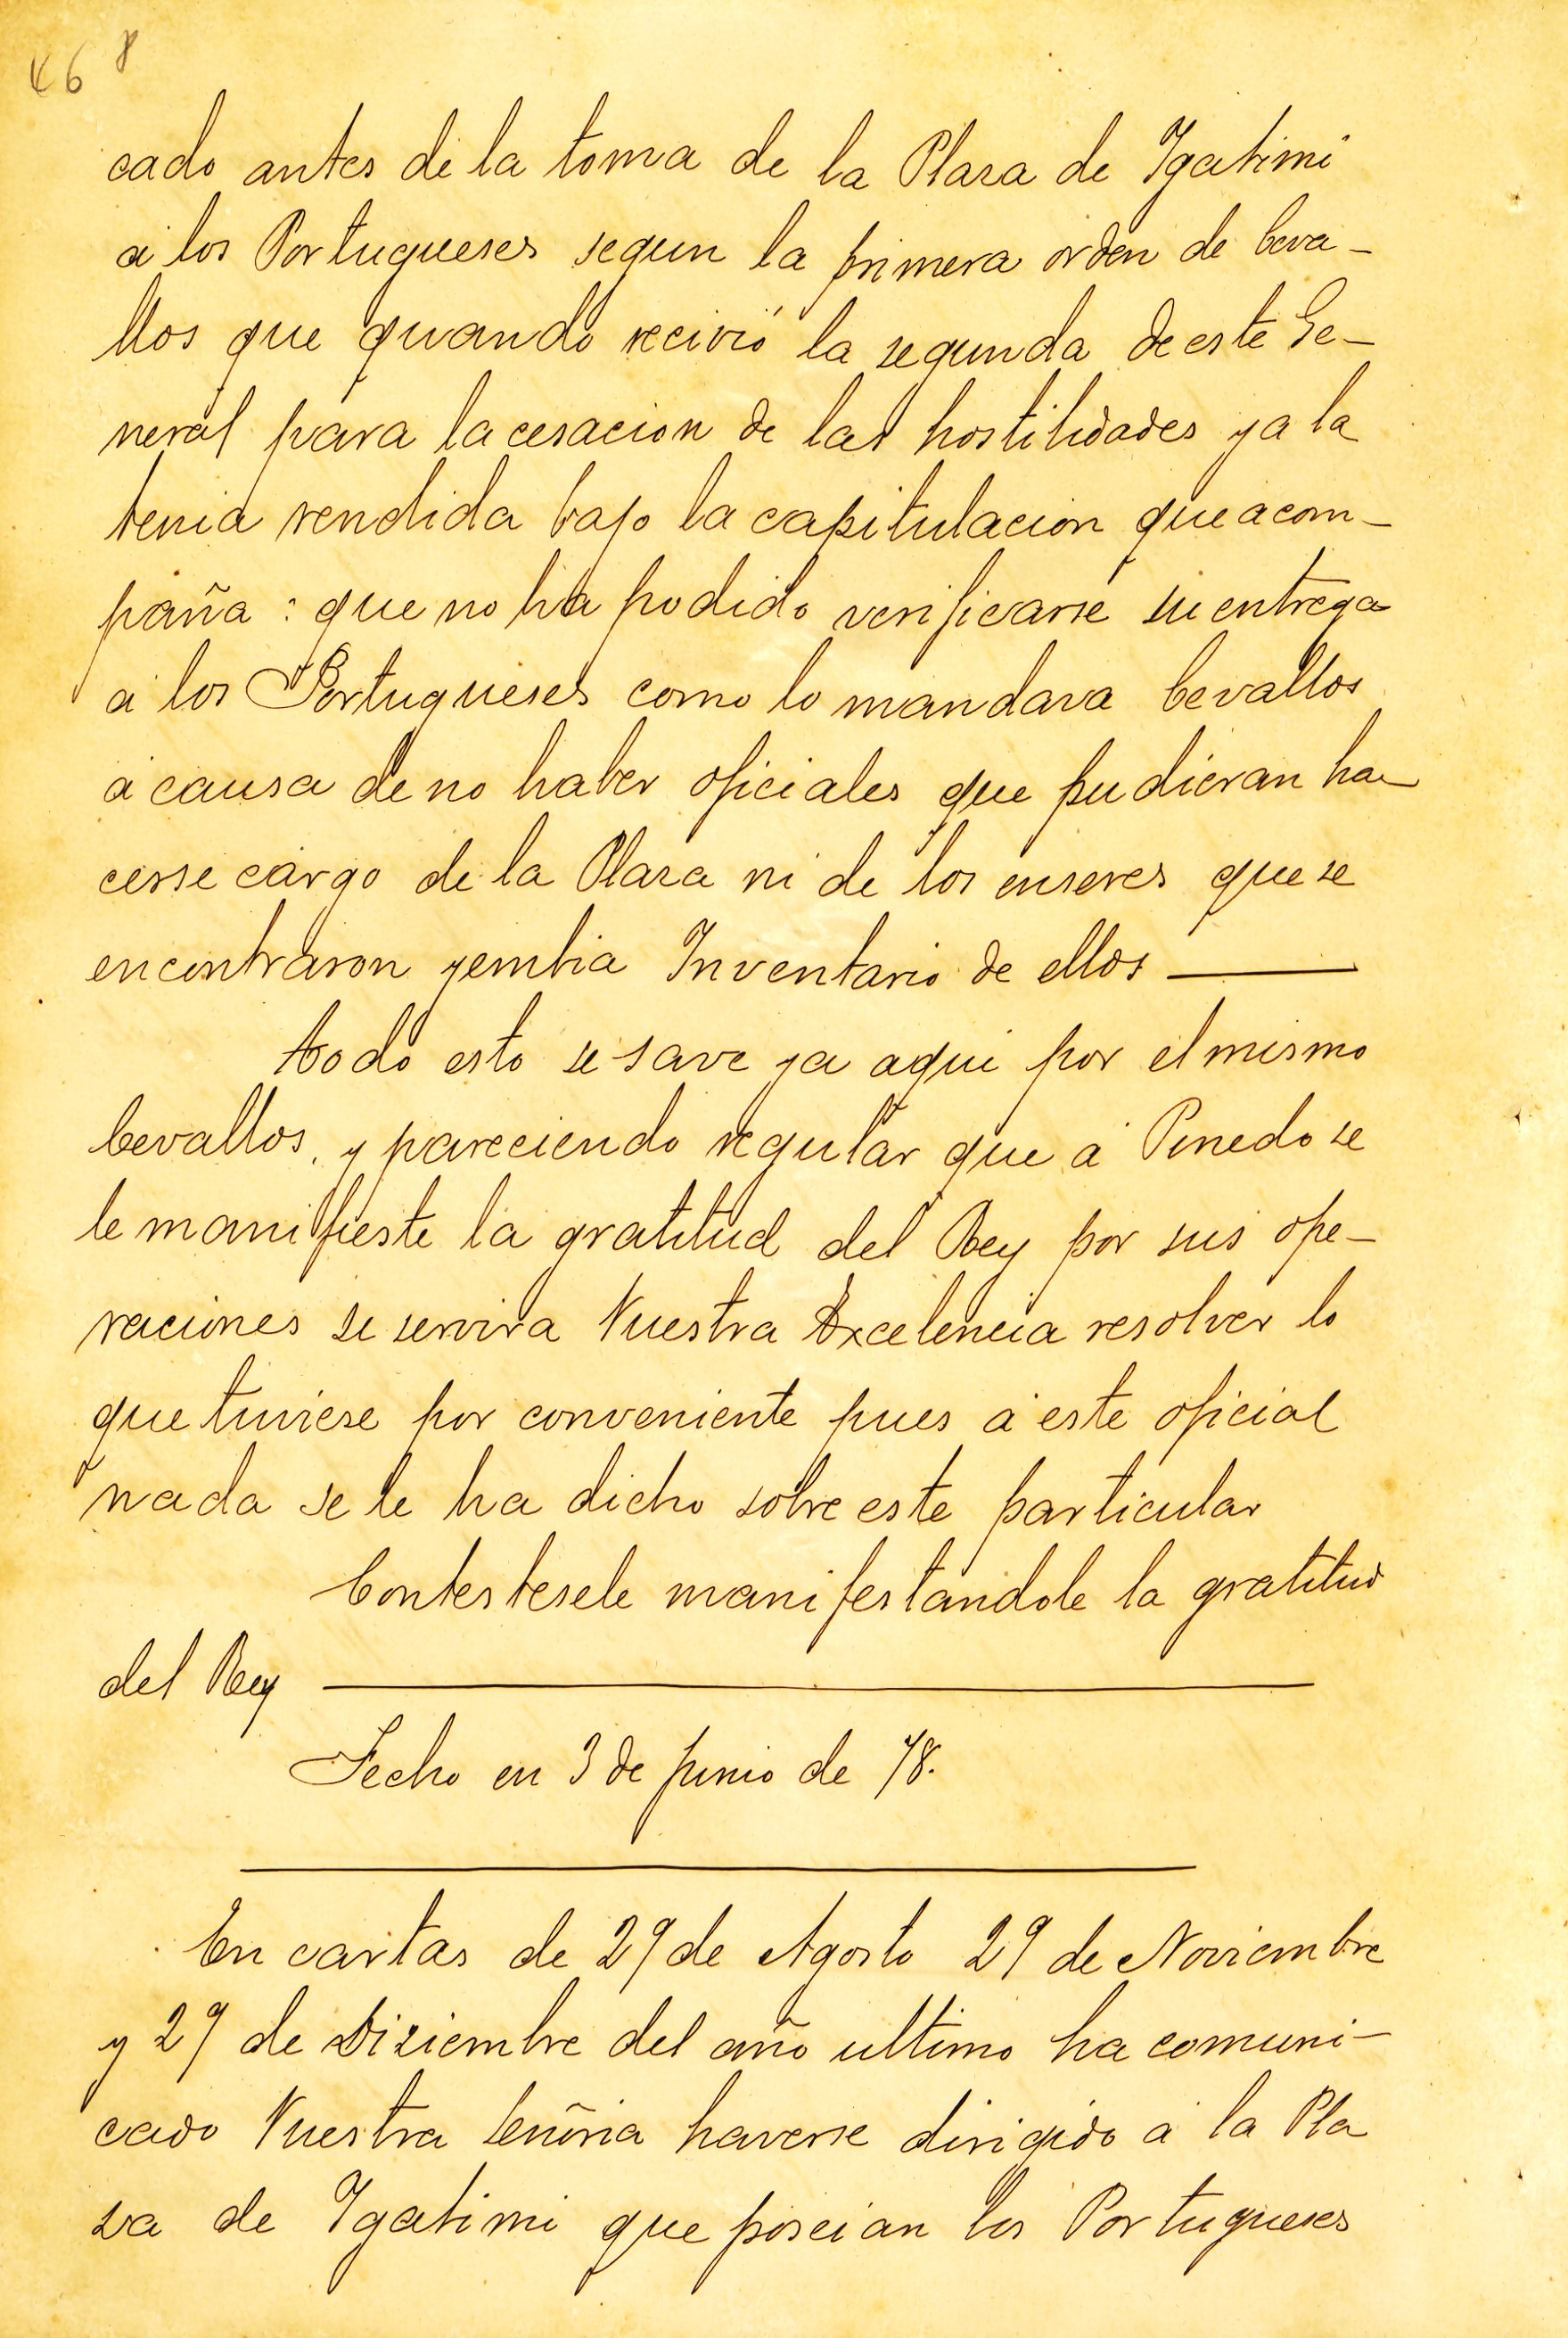 468
cado antes de la toma de la Plaza de Ygatimi
a los Portugueses segun la primera orden de Ceva-
llos que quando recivió la segunda de este Ge-
neral para la cesacion de las hostilidades ya la
tenia rendida bajo la capitulacion que acom-
paña: que no ha podido verificarse su entrega
a los Portugueses como lo mandava Cevallos
a causa de no haber oficiales que pudieran ha-
cerse cargo de la Plaza ni de los enseres que se
encontraron y embia Inventario de ellos
Todo esto se save ya aqui por el mismo
Cevallos, y pareciendo regular que a Pinedo se
le manifieste la gratitud del Rey por sus ope-
raciones se servira Vuestra Excelencia resolver lo
que tuviese por conveniente pues a este oficial
nada se le ha dicho sobre este particular
Contestesele manifestandole la gratitud
del Rey
Fecho en 3 de Junio de 78.
En cartas de 29 de Agosto 29 de Noviembre
y 29 de Diziembre del año ultimo ha comuni-
cado Vuestra Señoria haverse dirigido a la Pla
za de Ygatimi que poseian los Portugueses